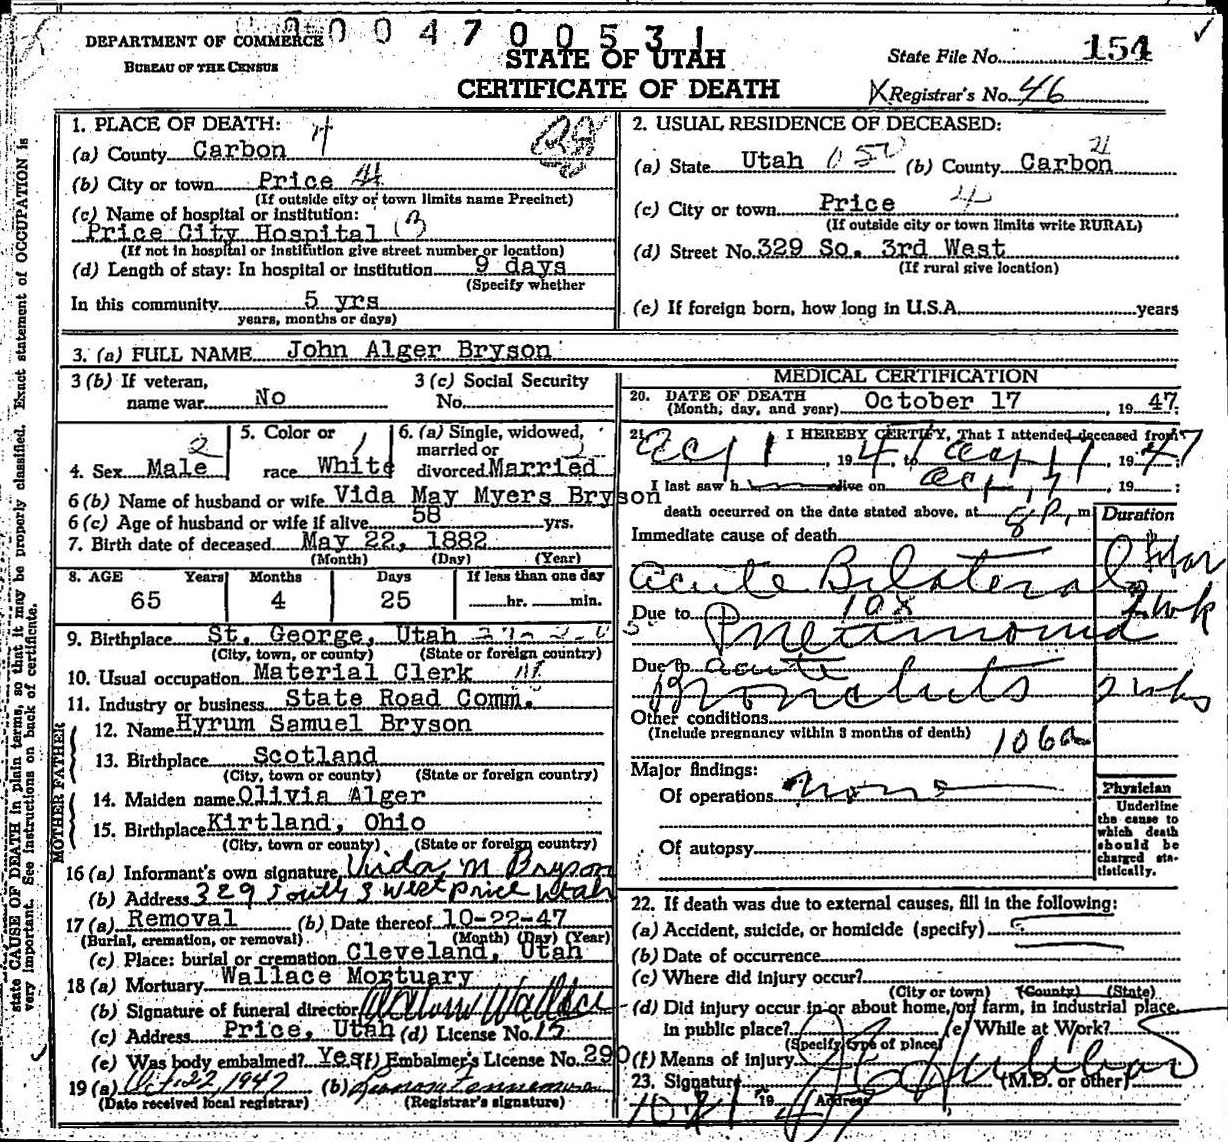 004700531
DEPARTMENT OF COMMERCE
BUREAU OF THE CENSUS
STATE OF UTAH
CERTIFICATE OF DEATH
State File No. 154
X Registrar's No. 46
state CAUSE OF DEATH in plain terms, so that it may be properly classified. Exact statement of OCCUPATION is
very important. See instructions on back of certificate.
1. PLACE OF DEATH:
(a) County Carbon 4
(b) City or town Price 4
(If outside city or town limits name Precinct)
(c) Name of hospital or institution:
Price City Hospital (3
(If not in hospital or institution give street number or location)
(d) Length of stay: In hospital or institution 9 days
(Specify whether
In this community 5 yrs
years, months or days)
2. USUAL RESIDENCE OF DECEASED:
(a) State Utah (b) County Carbon
(c) City or town Price 4
(If outside city or town limits write RURAL)
(d) Street No. 329 So. 3rd West
(If rural give location)
(e) If foreign born, how long in U.S.A. years
3. (a) FULL NAME John Alger Bryson
3 (b) If veteran,
name war No
3 (c) Social Security
No.
4. Sex Male 2
5. Color or
race White 1
6. (a) Single, widowed,
married or
divorced Married
6 (b) Name of husband or wife Vida May Myers Bryson
6 (c) Age of husband or wife if alive 58 yrs.
7. Birth date of deceased May 22, 1882
(Month) (Day) (Year)
8. AGE Years Months Days If less than one day
65 4 25 hr. min.
9. Birthplace St. George, Utah
(City, town, or county) (State or foreign country)
10. Usual occupation Material Clerk
11. Industry or business State Road Comm.
FATHER
12. Name Hyrum Samuel Bryson
13. Birthplace Scotland
(City, town or county) (State or foreign country)
MOTHER
14. Maiden name Olivia Alger
15. Birthplace Kirtland, Ohio
(City, town or county) (State or foreign country)
16 (a) Informant's own signature Vida M Bryson
(b) Address 329 South 3 West Price Utah
17 (a) Removal (b) Date thereof 10-22-47
(Burial, cremation, or removal) (Month) (Day) (Year)
(c) Place: burial or cremation Cleveland, Utah
18 (a) Mortuary Wallace Mortuary
(b) Signature of funeral director Wallace
(c) Address Price, Utah (d) License No. 15
(e) Was body embalmed? Yes (f) Embalmer's License No. 290
19 (a) Oct. 22, 1947 (b)
(Date received local registrar) (Registrar's signature)
MEDICAL CERTIFICATION
20. DATE OF DEATH
(Month, day, and year) October 17, 1947.
21. I HEREBY CERTIFY, That I attended deceased from
Oct 1, 1947 to Oct 17, 1947
I last saw h alive on Oct 17, 19 ;
death occurred on the date stated above, at 8 P. m
Duration
Immediate cause of death
Acute Bilateral
Due to 108
Pneumonia 2 wk
Due to acute
Bronchitis 2 wks
Other conditions
(Include pregnancy within 3 months of death) 106a
Major findings:
Of operations none
Of autopsy
Physician
Underline
the cause to
which death
should be
charged sta-
tistically.
22. If death was due to external causes, fill in the following:
(a) Accident, suicide, or homicide (specify)
(b) Date of occurrence
(c) Where did injury occur?
(City or town) (County) (State)
(d) Did injury occur in or about home, on farm, in industrial place,
in public place? (e) While at Work?
(Specify type of place)
(f) Means of injury
23. Signature (M.D. or other)
19 47 Address